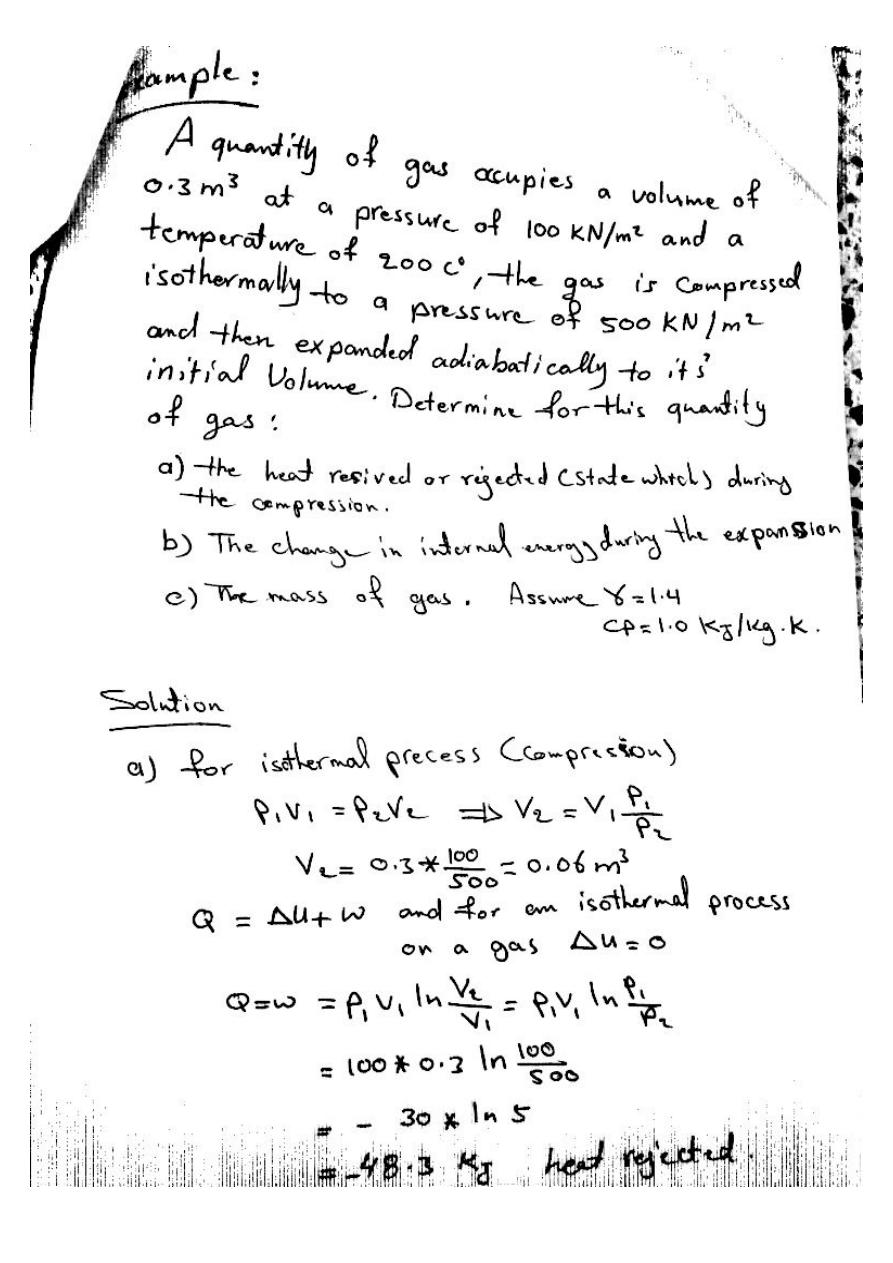 Example:
A quantity of gas occupies a volume of
0.3 m³ at a pressure of 100 KN/m² and a
temperature of 200 c°, the gas is compressed
isothermally to a pressure of 500 KN/m²
and then expanded adiabatically to it's
initial Volume. Determine for this quantity
of gas:
a) the heat resived or rejected (state which) during
the compression.
b) The change in internal energy during the expansion
c) The mass of gas. Assume γ=1.4
CP=1.0 KJ/kg.k.
Solution
a) for isothermal precess (compression)
P₁V₁ = P₂V₂ ⇒ V₂ = V₁ P₁/P₂
V₂ = 0.3 * 100/500 = 0.06 m³
Q = ΔU + W and for an isothermal process
on a gas ΔU = 0
Q=W = P₁V₁ ln V₂/V₁ = P₁V₁ ln P₁/P₂
= 100 * 0.3 ln 100/500
= - 30 * ln 5
= -48.3 KJ heat rejected.